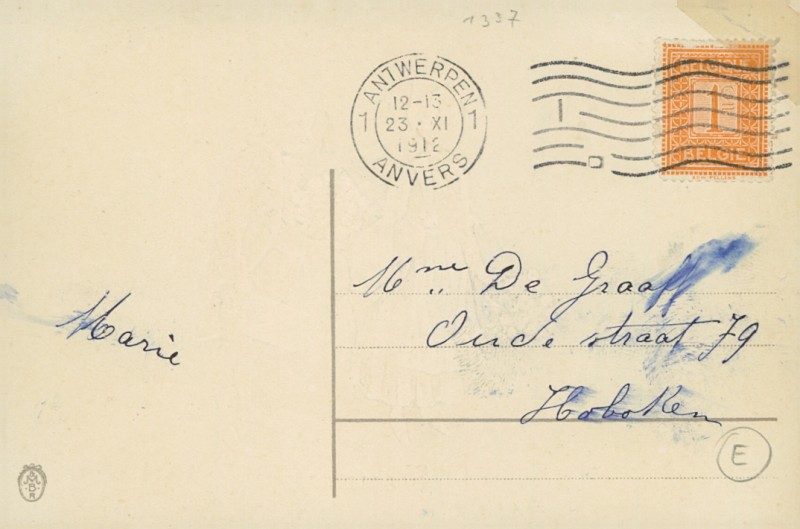 1397
ANTWERPEN
1 1
12-13
23 · XI
1912
ANVERS
BELGIQUE
1
BELGIË
Mme De Graaff
Oude straat 79
Hoboken
Marie
E